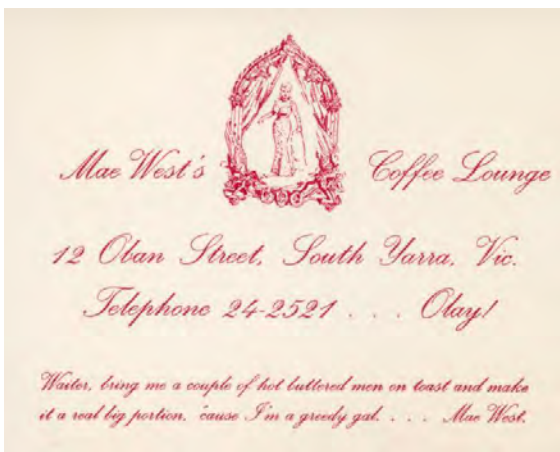 Mae West's Coffee Lounge
12 Oban Street, South Yarra, Vic.
Telephone 24-2521 . . . Olay!
Waiter, bring me a couple of hot buttered men on toast and make
it a real big portion, 'cause I'm a greedy gal. . . . Mae West.